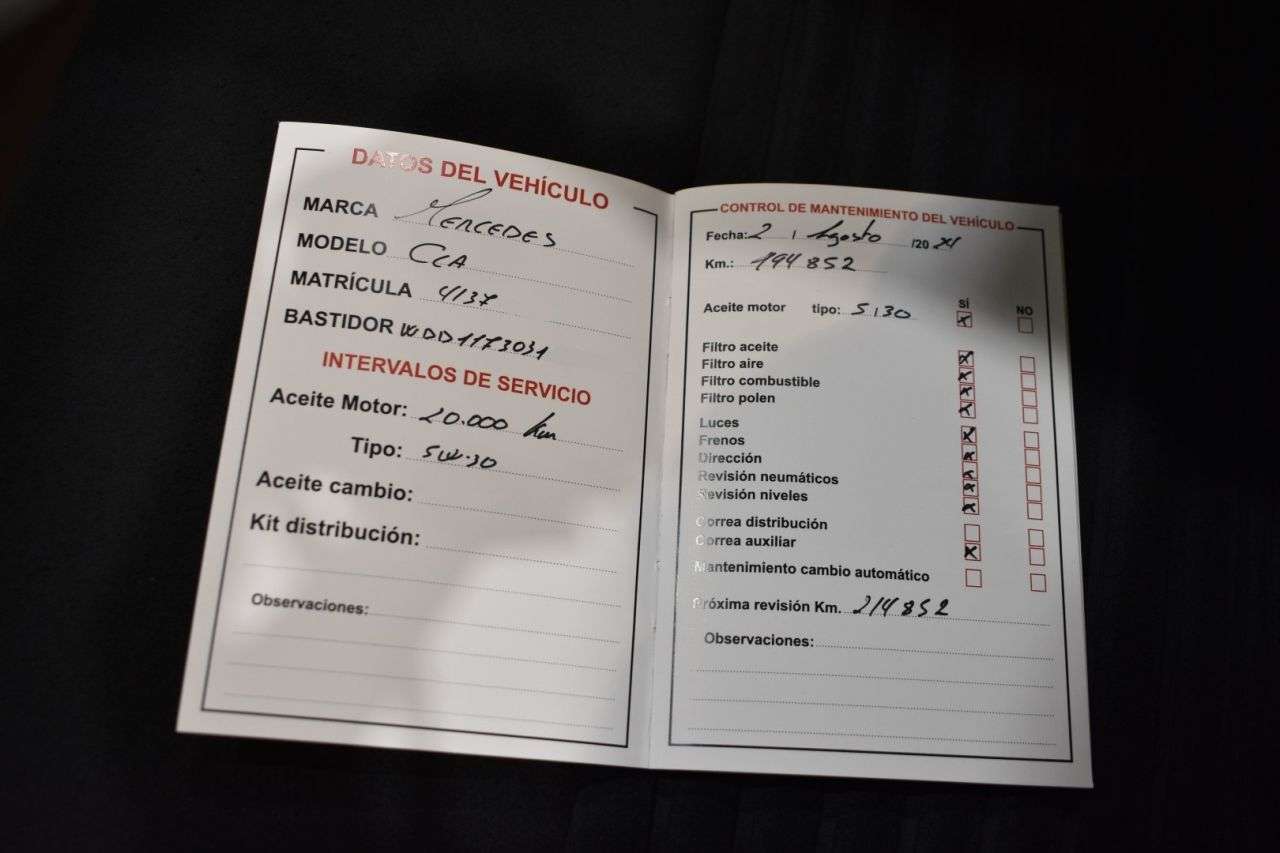 DATOS DEL VEHÍCULO
MARCA MERCEDES
MODELO CLA
MATRÍCULA 4137
BASTIDOR WDD1173031
INTERVALOS DE SERVICIO
Aceite Motor: 20.000 km
Tipo: 5W-30
Aceite cambio:
Kit distribución:
Observaciones:
CONTROL DE MANTENIMIENTO DEL VEHÍCULO
Fecha: 2 / Agosto /20
Km.: 194852
SÍ NO
Aceite motor tipo: 5/30
Filtro aceite
Filtro aire
Filtro combustible
Filtro polen
Luces
Frenos
Dirección
Revisión neumáticos
Revisión niveles
Correa distribución
Correa auxiliar
Mantenimiento cambio automático
Próxima revisión Km. 214852
Observaciones: